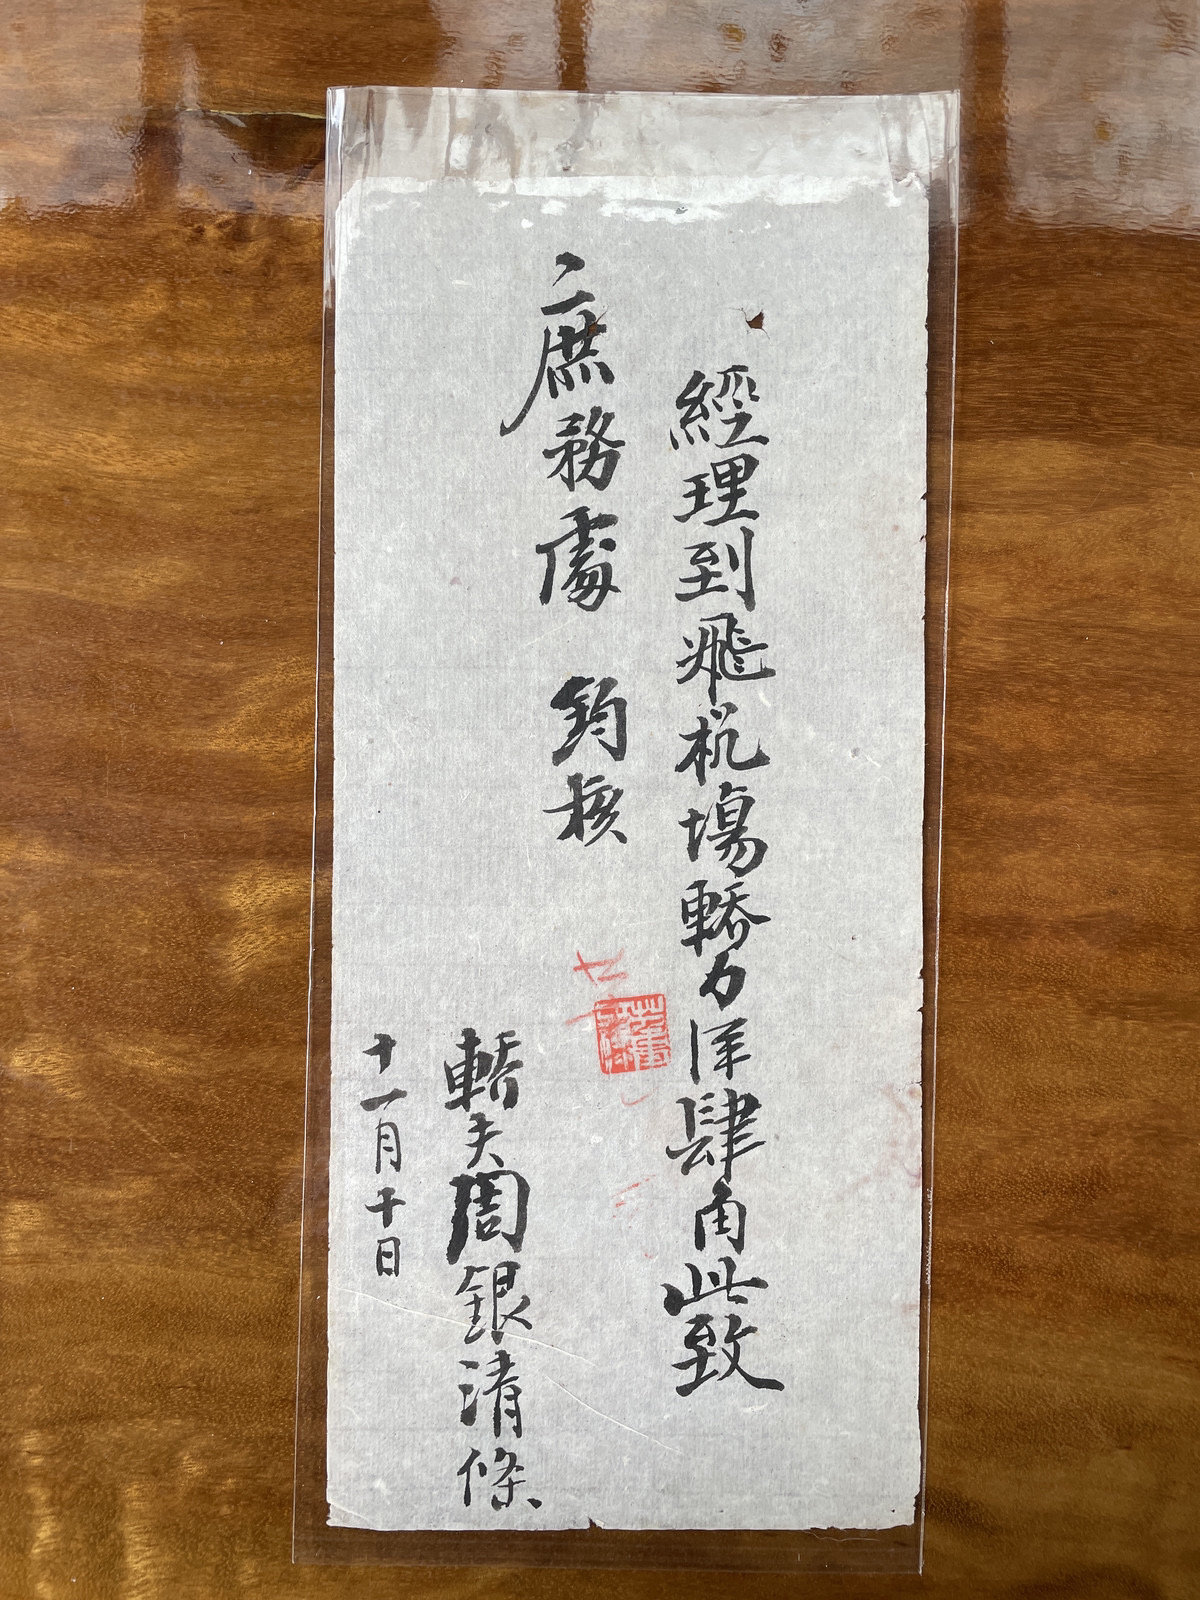 經理到飛机場轎力洋肆角此致
庶務處 鈞核
轎夫周銀清條
十一月十日